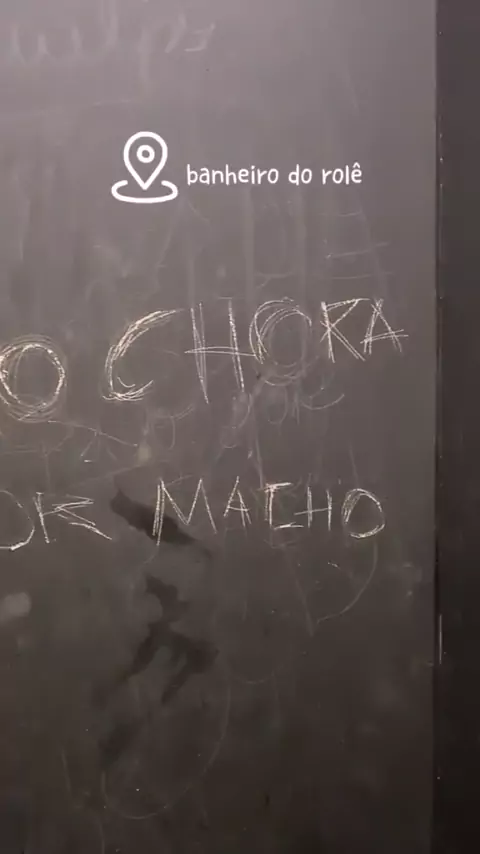 banheiro do rolê
O CHORA
OR MACHO